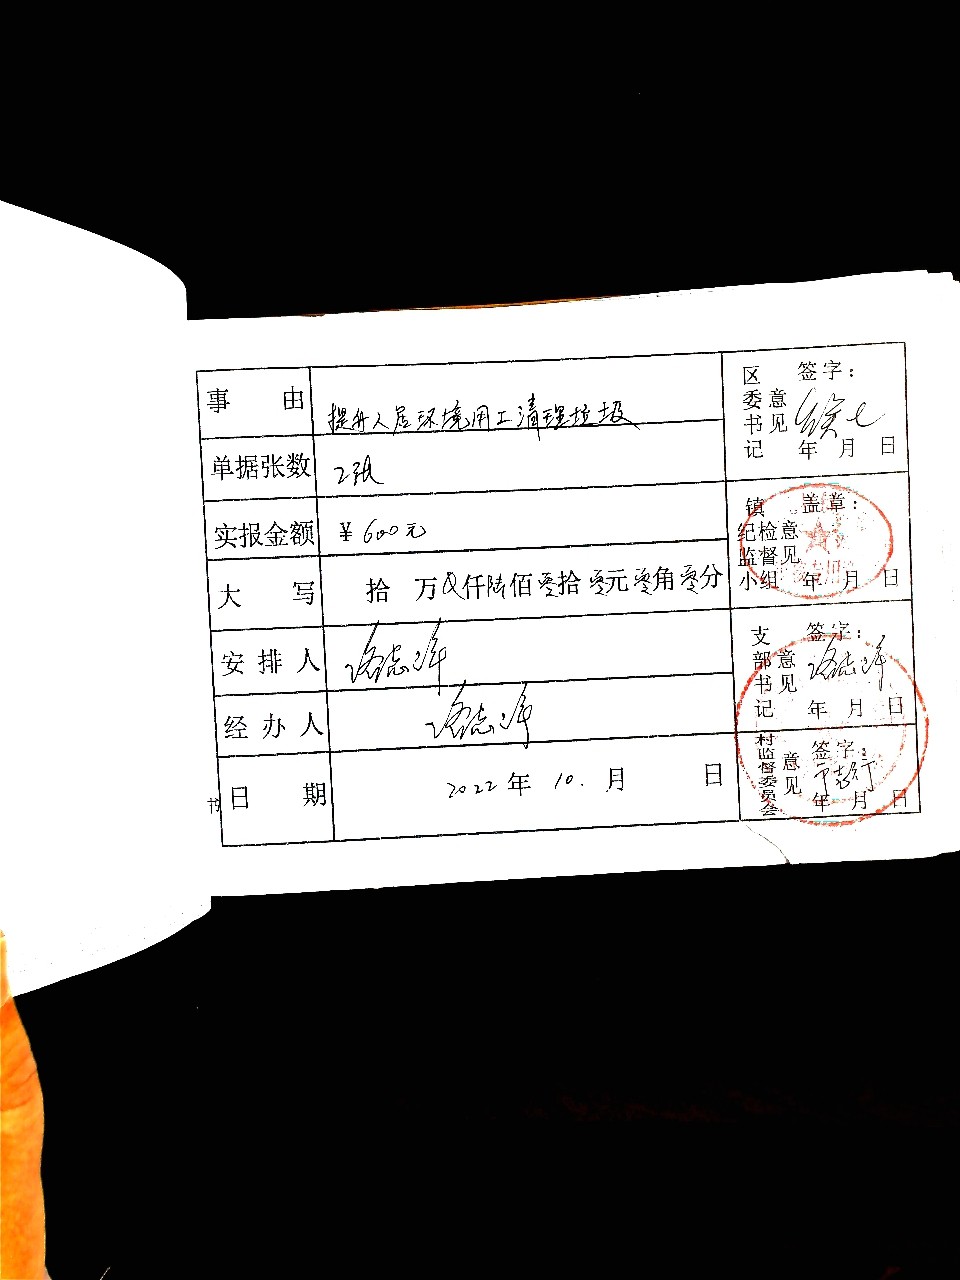 事 由 提升人居环境用工清理垃圾
单据张数 2张
实报金额 ¥600元
大 写 拾 万 仟陆佰零拾零元零角零分
安排人
经办人
日 期 2022年10.月 日
区委书记意见 签字:
年 月 日
镇纪检监督小组意见 盖章:
年 月 日
支部书记意见 签字:
年 月 日
村监督委员会意见 签字:
年 月 日